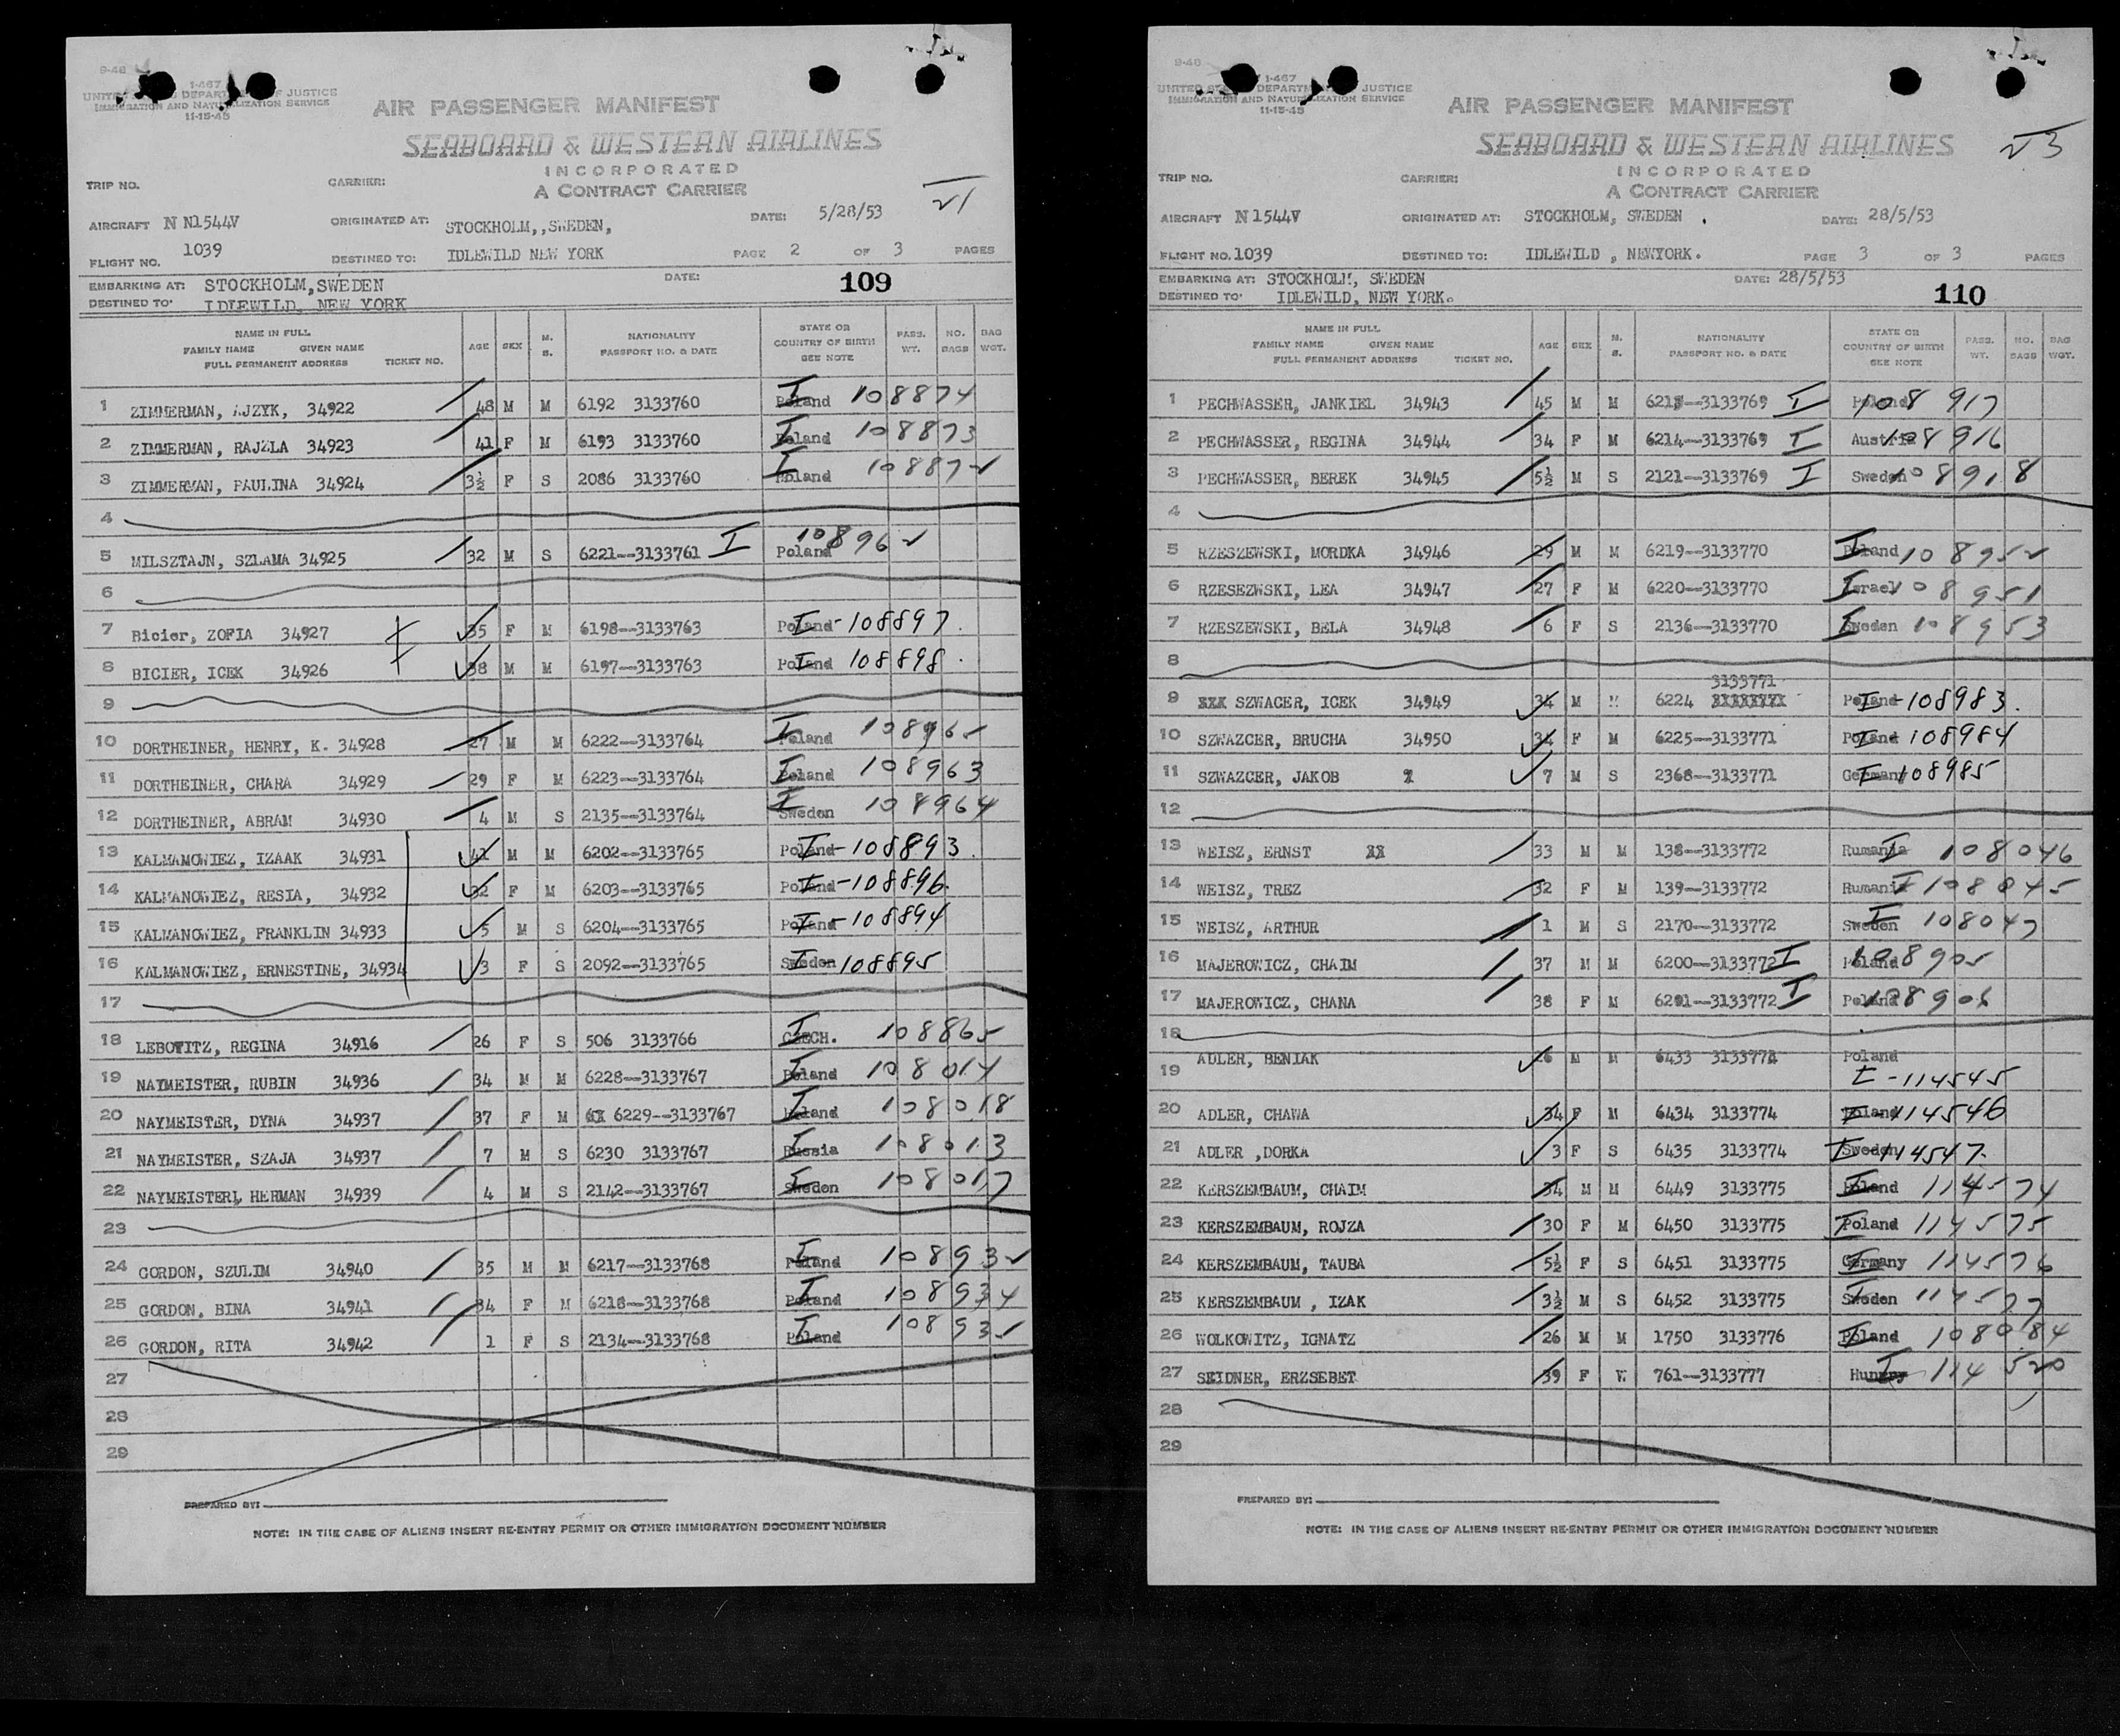 9-46
1-467
UNITED STATES DEPARTMENT OF JUSTICE
IMMIGRATION AND NATURALIZATION SERVICE
11-15-45
AIR PASSENGER MANIFEST
SEABOARD & WESTERN AIRLINES
INCORPORATED
A CONTRACT CARRIER
21
TRIP NO. CARRIER:
AIRCRAFT N N1544V ORIGINATED AT: STOCKHOLM,,SWEDEN, DATE: 5/28/53
FLIGHT NO. 1039 DESTINED TO: IDLEWILD NEW YORK PAGE 2 OF 3 PAGES
EMBARKING AT: STOCKHOLM,SWEDEN DATE: 109
DESTINED TO: IDLEWILD, NEW YORK
NAME IN FULL
FAMILY NAME GIVEN NAME
FULL PERMANENT ADDRESS TICKET NO. AGE SEX M. S. NATIONALITY PASSPORT NO. & DATE STATE OR COUNTRY OF BIRTH SEE NOTE PASS. WT. NO. BAGS BAG WGT.
1 ZIMMERMAN, AJZYK, 34922 48 M M 6192 3133760 Poland I 108874
2 ZIMMERMAN, RAJZLA 34923 41 F M 6193 3133760 Poland I 108873
3 ZIMMERMAN, PAULINA 34924 3½ F S 2086 3133760 Poland I 108872
4
5 MILSZTAJN, SZLAMA 34925 32 M S 6221--3133761 I Poland 108962
6
7 Bicier, ZOFIA 34927 35 F M 6198--3133763 Poland I-108897.
8 BICIER, ICEK 34926 38 M M 6197--3133763 Poland I 108898.
9
10 DORTHEINER, HENRY, K. 34928 27 M M 6222--3133764 Poland I 108965
11 DORTHEINER, CHARA 34929 29 F M 6223--3133764 Poland I 108963
12 DORTHEINER, ABRAM 34930 4 M S 2135--3133764 Sweden I 108964
13 KALMAMOWIEZ, IZAAK 34931 41 M M 6202--3133765 Poland I-108893.
14 KALMANOWIEZ, RESIA, 34932 32 F M 6203--3133765 Poland I-108896.
15 KALMANOWIEZ, FRANKLIN 34933 5 M S 6204--3133765 Poland I-108894
16 KALMANOWIEZ, ERNESTINE, 34934 3 F S 2092--3133765 Sweden I 108895
17
18 LEBOWITZ, REGINA 34916 26 F S 506 3133766 CZECH. I 108865
19 NAYMEISTER, RUBIN 34936 34 M M 6228--3133767 Poland I 108014
20 NAYMEISTER, DYNA 34937 37 F M 6229--3133767 Poland I 108018
21 NAYMEISTER, SZAJA 34937 7 M S 6230 3133767 Russia I 108013
22 NAYMEISTER, HERMAN 34939 4 M S 2142--3133767 Sweden I 108017
23
24 GORDON, SZULIM 34940 35 M M 6217--3133768 Poland I 108932
25 GORDON, BINA 34941 34 F M 6218--3133768 Poland I 108934
26 GORDON, RITA 34942 1 F S 2134--3133768 Poland I
27
28
29
PREPARED BY:
NOTE: IN THE CASE OF ALIENS INSERT RE-ENTRY PERMIT OR OTHER IMMIGRATION DOCUMENT NUMBER
9-46
1-467
UNITED STATES DEPARTMENT OF JUSTICE
IMMIGRATION AND NATURALIZATION SERVICE
11-15-45
AIR PASSENGER MANIFEST
SEABOARD & WESTERN AIRLINES
INCORPORATED
A CONTRACT CARRIER
23
TRIP NO. CARRIER:
AIRCRAFT N 1544V ORIGINATED AT: STOCKHOLM, SWEDEN . DATE: 28/5/53
FLIGHT NO. 1039 DESTINED TO: IDLEWILD , NEWYORK. PAGE 3 OF 3 PAGES
EMBARKING AT: STOCKHOLM, SWEDEN DATE: 28/5/53
DESTINED TO: IDLEWILD, NEW YORK. 110
NAME IN FULL
FAMILY NAME GIVEN NAME
FULL PERMANENT ADDRESS TICKET NO. AGE SEX M. S. NATIONALITY PASSPORT NO. & DATE STATE OR COUNTRY OF BIRTH SEE NOTE PASS. WT. NO. BAGS BAG WGT.
1 PECHWASSER, JANKIEL 34943 45 M M 6213--3133769 I Poland 108917
2 PECHWASSER, REGINA 34944 34 F M 6214--3133769 I Austria 108916
3 PECHWASSER, BEREK 34945 5½ M S 2121--3133769 I Sweden 108918
4
5 RZESZEWSKI, MORDKA 34946 29 M M 6219--3133770 Poland I 108952
6 RZESEZWSKI, LEA 34947 27 F M 6220--3133770 Israel I 108951
7 RZESZEWSKI, BELA 34948 6 F S 2136--3133770 Sweden I 108953
8
3133771
9 XXX SZWACER, ICEK 34949 34 M M 6224 Poland I-108983.
10 SZWAZCER, BRUCHA 34950 34 F M 6225--3133771 Poland I 108984
11 SZWAZCER, JAKOB 7 M S 2368--3133771 Germany I-108985
12
13 WEISZ, ERNST XX 33 M M 138--3133772 Rumania I 108046
14 WEISZ, TREZ 32 F M 139--3133772 Rumania I 108045
15 WEISZ, ARTHUR 1 M S 2170--3133772 Sweden I 108047
16 MAJEROWICZ, CHAIM 37 M M 6200--3133772 I Poland 108905
17 MAJEROWICZ, CHANA 38 F M 6201--3133772 I Poland 108906
18
19 ADLER, BENIAK 26 M M 6433 3133774 Poland
I-114545
20 ADLER, CHAWA 34 F M 6434 3133774 Poland I-114546
21 ADLER ,DORKA 3 F S 6435 3133774 Sweden I-114547.
22 KERSZEMBAUM, CHAIM 34 M M 6449 3133775 Poland I 114574
23 KERSZEMBAUM, ROJZA 30 F M 6450 3133775 Poland I 114575
24 KERSZEMBAUM, TAUBA 5½ F S 6451 3133775 Germany I 114576
25 KERSZEMBAUM , IZAK 3½ M S 6452 3133775 Sweden I 114577
26 WOLKOWITZ, IGNATZ 26 M M 1750 3133776 Poland I 108084
27 SEIDNER, ERZSEBET 39 F W 761--3133777 Hungry I 114520
28
29
PREPARED BY:
NOTE: IN THE CASE OF ALIENS INSERT RE-ENTRY PERMIT OR OTHER IMMIGRATION DOCUMENT NUMBER